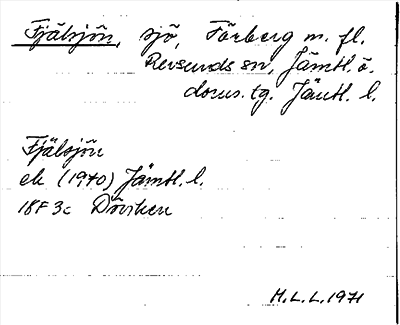 Fjälsjön, sjö, Förberg m. fl.
Revsunds sn, Jämtl. ö.
doms. tg. Jämtl. l.
Fjälsjön
ek (1970) Jämtl. l.
18F 3c Döviken
H.L.L. 1971